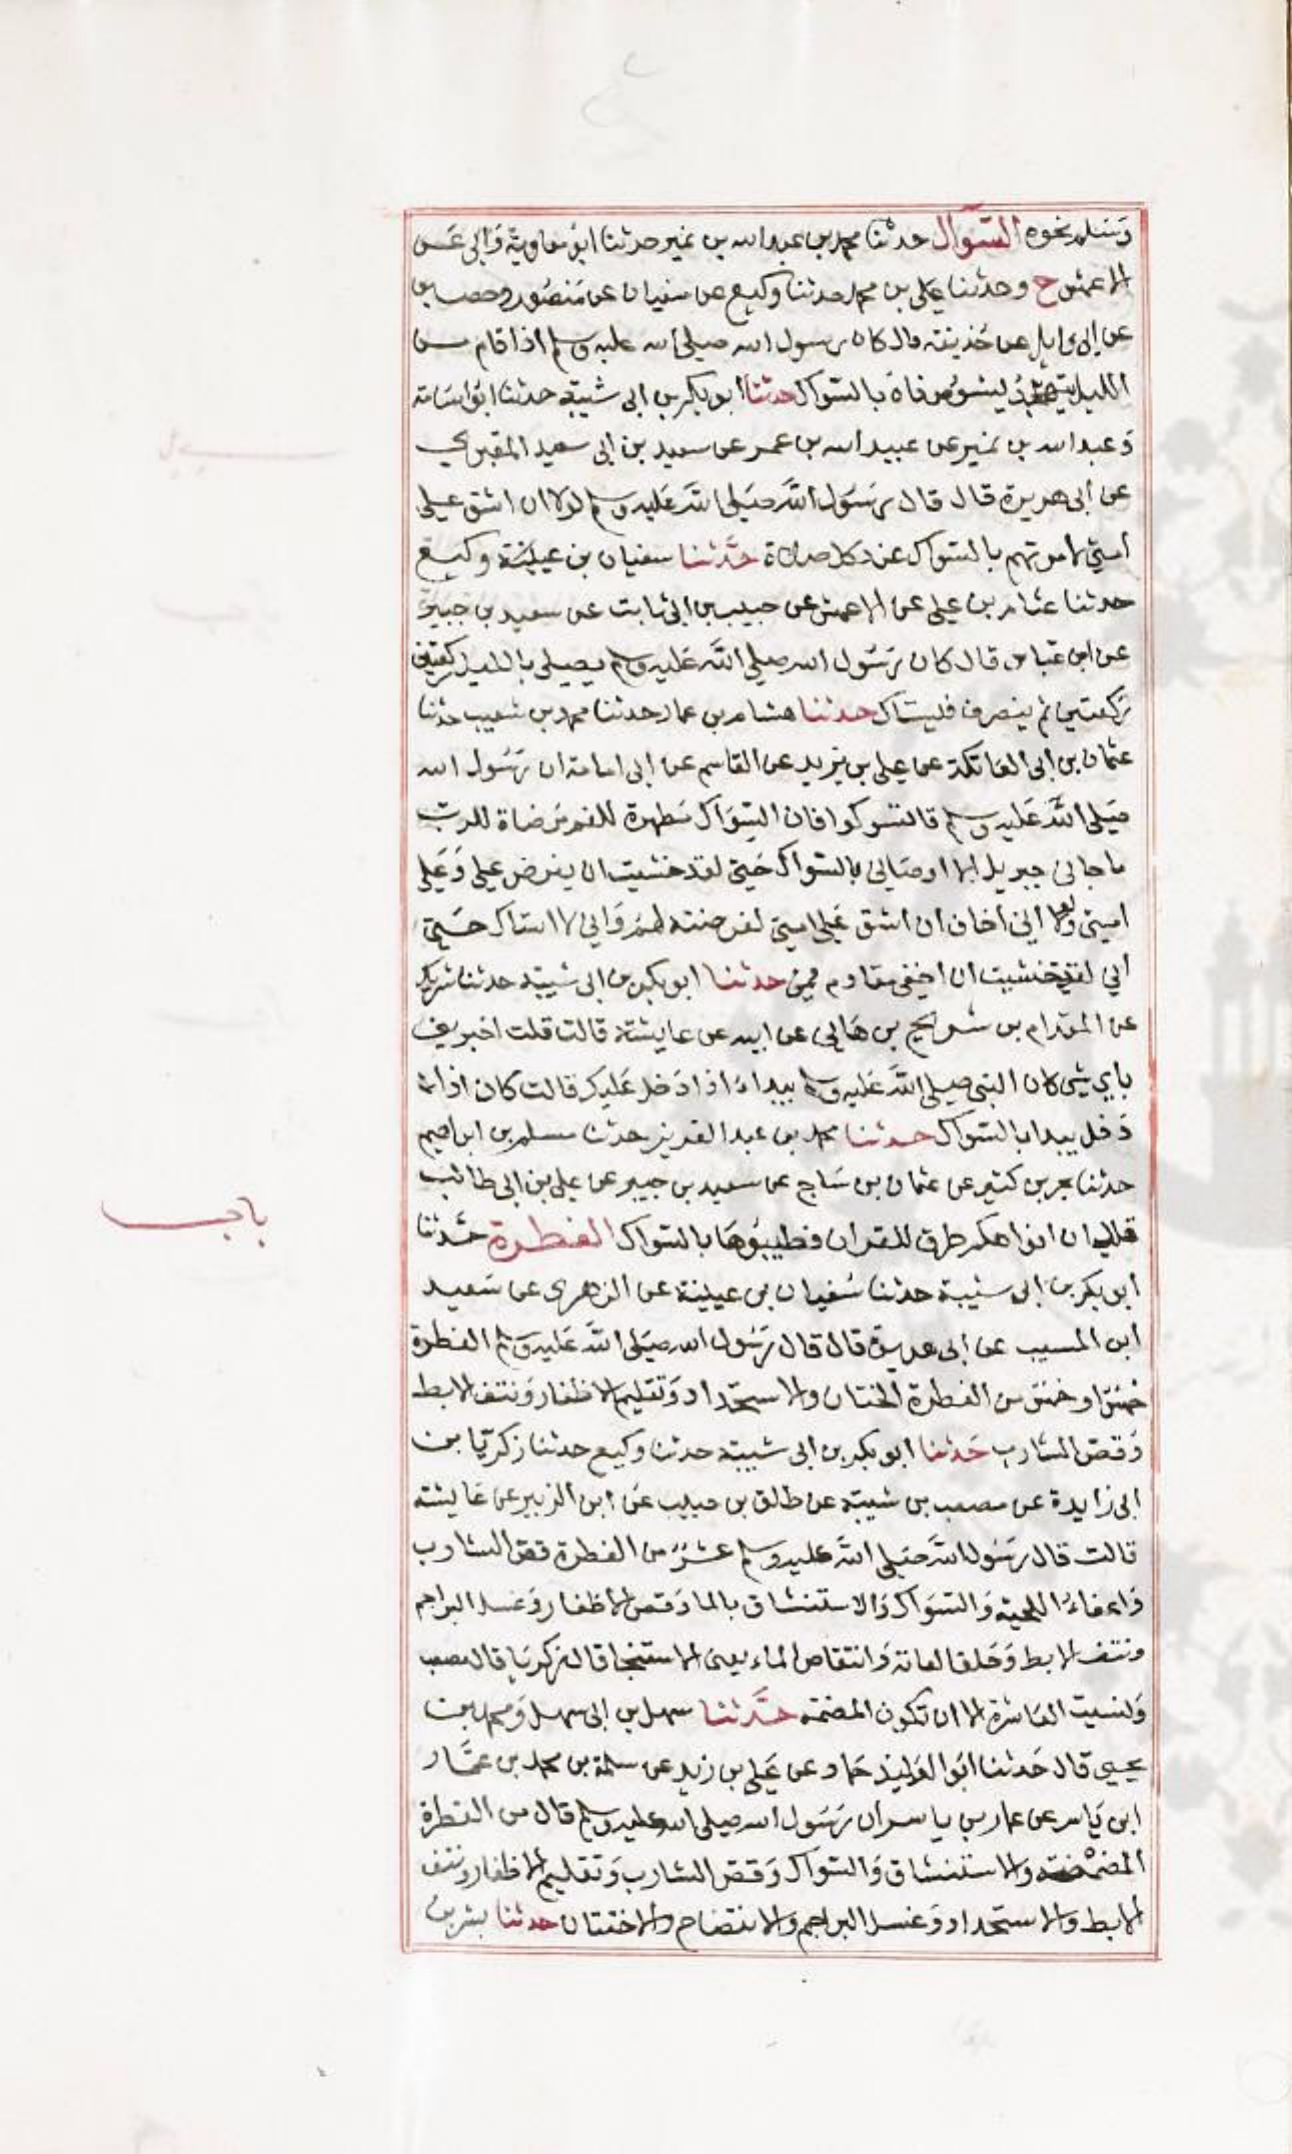 وسلم نحوه السواك حدثنا محمد بن عبد الله بن نمير حدثنا ابو معاوية وابي عن
الاعمش ح وحدثنا علي بن محمد حدثنا وكيع عن سفيان عن منصور وحصين
عن ابي وايل عن حذيفة قال كان رسول الله صلى الله عليه وسلم اذا قام من
الليل يتهجد يشوص فاه بالسواك حدثنا ابو بكر بن ابي شيبة حدثنا ابو اسامة
وعبد الله بن نمير عن عبيد الله بن عمر عن سعيد بن ابي سعيد المقبري
عن ابي هريرة قال قال رسول الله صلى الله عليه وسلم لولا ان اشق على
امتي لامرتهم بالسواك عند كل صلاة حدثنا سفيان بن عيينة وكيع
حدثنا عثام بن علي عن الاعمش عن حبيب بن ابي ثابت عن سعيد بن جبير
عن ابن عباس قال كان رسول الله صلى الله عليه وسلم يصلي بالليل ركعتين
ركعتين ثم ينصرف فليستاك حدثنا هشام بن عمار حدثنا محمد بن شعيب حدثنا
عثمان بن ابي العاتكة عن علي بن يزيد عن القاسم عن ابي امامة ان رسول الله
صلى الله عليه وسلم قال تسوكوا فان السواك مطهرة للفم مرضاة للرب
ما جاني جبريل الا اوصاني بالسواك حتى لقد خشيت ان يفرض علي وعلى
امتي ولولا اني اخاف ان اشق على امتي لفرضته لهم واني لا استاك حتى
اني لقد خشيت ان احفي مقادم فمي حدثنا ابو بكر بن ابي شيبة حدثنا شريك
عن المقدام بن شريح بن هاني عن ابيه عن عايشة قالت قلت اخبريني
باي شي كان النبي صلى الله عليه وسلم يبداء اذا دخل عليك قالت كان اذا
دخل يبدا بالسواك حدثنا محمد بن عبد العزيز حدثنا مسلم بن ابراهيم
حدثنا بحر بن كثير عن عثمان بن ساج عن سعيد بن جبير عن علي بن ابي طالب
قال ان افواهكم طرق للقران فطيبوها بالسواك الفطرة حدثنا
باب
ابو بكر بن ابي شيبة حدثنا سفيان بن عيينة عن الزهري عن سعيد
ابن المسيب عن ابي هريرة قال قال رسول الله صلى الله عليه وسلم الفطرة
خمس او خمس من الفطرة الختان والاستحداد وتقليم الاظفار ونتف الابط
وقص الشارب حدثنا ابو بكر بن ابي شيبة حدثنا وكيع حدثنا زكريا بن
ابي زايدة عن مصعب بن شيبة عن طالق بن حبيب عن ابن الزبير عن عايشة
قالت قال رسول الله صلى الله عليه وسلم عشر من الفطرة قص الشارب
واعفاء اللحية والسواك والاستنشاق بالما وقص الاظفار وغسل البراجم
ونتف الابط وحلق العانة وانتقاص الماء يعني الاستنجا قال زكريا قال مصعب
ونسيت العاشرة الا ان تكون المضمضة حدثنا سهل بن ابي سهل ومحمد بن
يحيي قال حدثنا ابو الوليد حماد عن علي بن زيد عن سلمة بن محمد بن عمار
ابن ياسر عن عمار بن ياسر ان رسول الله صلى الله عليه وسلم قال من الفطرة
المضمضة والاستنشاق والسواك وقص الشارب وتقليم الاظفار ونتف
الابط والاستحداد وغسل البراجم والانتضاح والاختتان حدثنا بشر بن